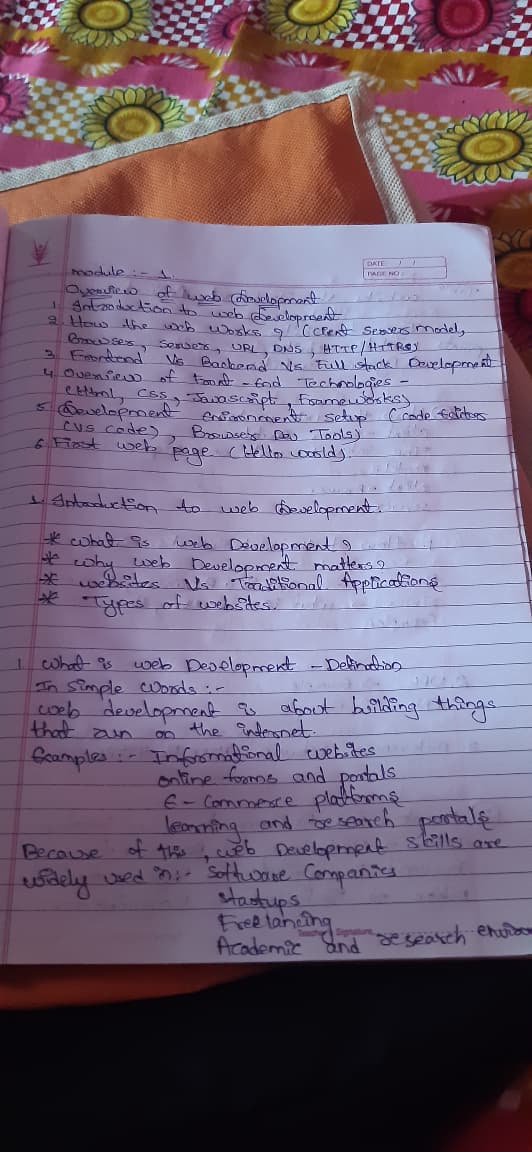 DATE / /
PAGE NO.
module :- 1.
Overview of web Development
1. Introduction to web Development
2 How the web works ? (Client Servers model,
Browser, Server, URL, DNS, HTTP/HTTPS)
3. Frontend Vs Backend Vs Full stack Development
4. Overview of Front-end Technologies -
(Html, CSS, Javascript, Frameworks)
5 Development environment setup (code Editors
(VS code), Browsers Dev Tools)
6. First web page (Hello world).
1. Introduction to web Development.
* what is web Development?
* why web Development matters?
* websites Vs Traditional Applications
* Types of websites.
1. What is web Development - Definition
In simple words :-
web development is about building things
that run on the internet.
Examples :- Informational websites
online forms and portals
E-Commerce platforms
learning and research portals
Because of this, web Development skills are
widely used in :- Software Companies
Startups
Freelancing
Signature
Academic and research